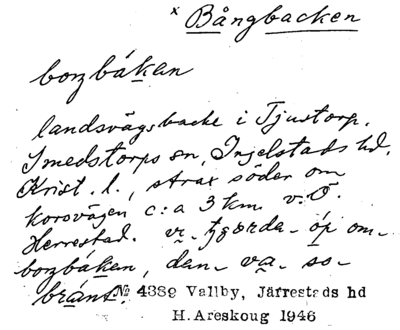 x Bångbacken
boŋbákan
landsvägsbacke i Tjustorp,
Smedstorps sn, Ingelstads hd,
Krist. l., strax söder om
korsvägen c:a 3 km v. Ö.
Herrestad. vɪ- tjɵrda- öp om-
boŋbákan, dan- va- so-
bránt.
№ 4389 Vallby, Järrestads hd
H. Areskoug 1946